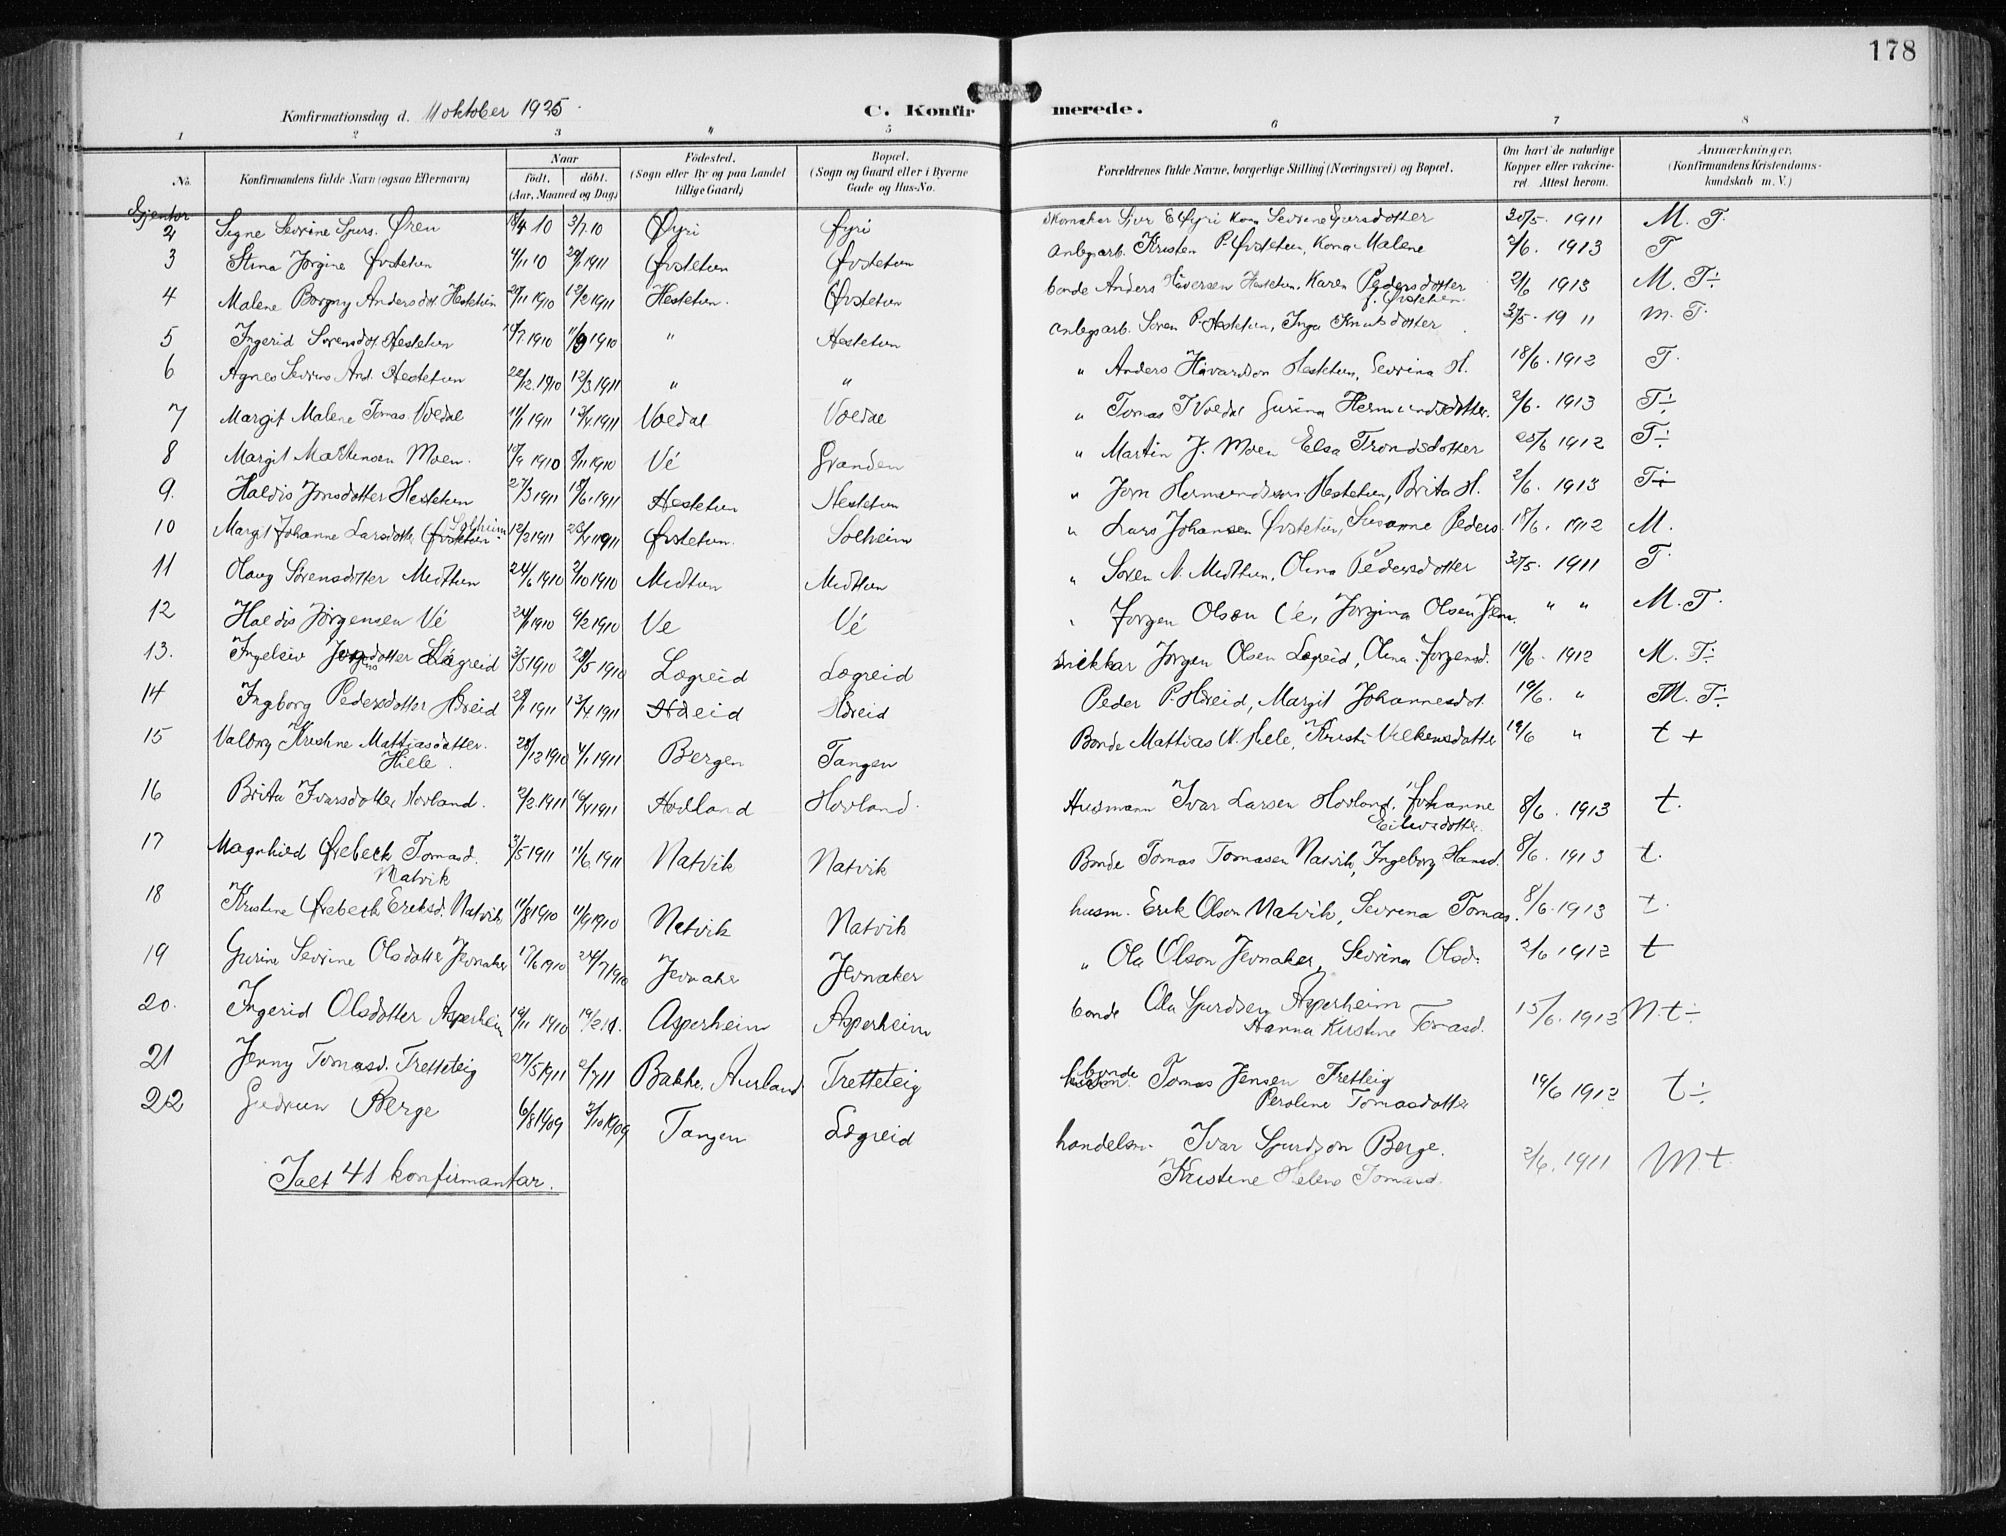 178
Konfirmationsdag d. 11 oktober 1925.
C. Konfirmerede.
1 2 3 4 5 6 7 8
No. Konfirmandens fulde Navn (ogsaa Efternavn) Naar født. døbt. (Aar, Maaned og Dag) Fødested. (Sogn eller By og paa Landet tillige Gaard) Bopæl. (Sogn og Gaard eller i Byerne Gade og Hus-No. Forældrenes fulde Navne, borgerlige Stilling (Næringsvei) og Bopæl. Om havt de naturlige Kopper eller vakcineret. Attest herom. Anmærkninger. (Konfirmandens Kristendomskundskab m. V.)
Gjentor
2 Signe Sevrine Sjurs. Øren 18/4 10 3/7 10 Øyri Øyri Skomaker Sjur E Øyri Kona Sevrine Gursdotter 30/5. 1911 M. T.
3 Stina Jørgine Øvstetun 4/11 10 29/1 1911 Øvstetun Øvstetun anlegsarb. Kristen P. Øvstetun, Kona Malene 2/6. 1913 T
4 Malene Borgny Andersdot. Hestetun 20/11 1910 12/2 1911 Hestetun. Øvstetun bonde Anders Håversen Hestetun, Karen Pedersdotter f. Øvstetun 2/6 1913 M. T÷
5 Ingerid Sørensdot. Hestetun 10/7 1910 11/9 1910 " Hestetun anlegsarb. Søren P. Hestetun, Inga Knutsdotter 30/5. 1911 M. T.
6 Agnes Sevrine And. Hestetun 22/12. 1910 12/3 1911 " " " Anders Håvardson Hestetun, Sevrina H. 18/6. 1912 T.
7 Margit Malene Tomas. Voldal 11/1 1911 13/4 1911 Voldal Voldal " Tomas T Voldal Gurina Hermundsdotter. 2/6. 1913 T÷
8 Margit Martensen Moen. 10/9 1910 6/11 1910 Vé Granden " Martin J. Moen Elsa Trondsdotter 25/6 1912 T÷
9. Haldis Jonsdotter Hestetun 27/3 1911 18/6 1911 Hestetun Hestetun " Jorn Hermundsson Hestetun, Brita H. 2/6. 1913 T÷
10 Margit Johanne Larsdotter Øvstetun Solheim 12/2 1911 23/4 1911 Øvstetun. Solheim " Lars Johansen Øvstetun, Susanne Peders. 18/6. 1912 M.
11 Olaug Sørensdotter Midttun 24/6 1910 2/10 1910 Midttun Midttun " Søren N. Midttun, Olina Pedersdotter 30/5. 1911 T
12 Haldis Jørgensen Vé 24/1 1910 9/2 1910 Ve Vé " Jørgen Olson Ve, Jorgina Olsen Jern. " " M. T.
13. Ingeleiv Jørgensdotter Lægreid 3/5 1910 28/5 1910 Lægreid Lægreid snikkar Jørgen Olsen Lægreid, Olina Jorgensd. 19/6. 1912 M. T÷
14 Ingborg Pedersdotter Hæreid 28/1 1911 13/4 1911 Hæreid Hæreid Peder P. Hæreid, Margit Johannesdot. 19/6. " M. T÷
15 Valborg Kristine Mattiasdatter. Hiele. 28/12 1910 4/1 1911 Bergen Tangen Bonde Mattias N. Hiele, Kristi Velkensdatter 19/6 " t +
16 Brita Ivarsdotter Hovland. 2/2 1911 16/4 1911 Hovland Hovland. Husmann Ivar Larsen Hovland, Johanne Eilivsdotter. 8/6. 1913 t.
17 Magnhild Ørebeck Tomasd. Natvik 3/5 1911 11/6. 1911 Natvik Natvik Bonde Tomas Tomasen Natvik, Ingeborg Hansd. 8/6. 1913 t.
18 Kristine Ørebech Eriksd. Natvik 11/8 1910 11/9 1910 Natvik Natvik husm. Erik Olson Natvik, Sevrina Tomas. 8/6. 1913 t.
19 Gurine Sevrine Olsdotter Jevnaker 17/6 1910 24/7 1910 Jevnaker Jevnaker " Ola Olson Jevnaker, Sevrina Olsd. 2/6 1912 t
20. Ingerid Olsdotter Asperheim 19/11 1910 19/2 11. Asperheim Asperheim bonde Ola Sjurdsen Asperheim Hanna Kristine Tomasd. 15/6. 1912 N. t÷
21 Jenny Tomasd. Tretteteig 27/5 1911 2/7 11 Bakke, Aurland Tretteteig bonde Tomas Jensen Tretteig Peroline Tomasdotter 19/6 1912 t÷
22 Gudrun Berge 6/8 1909 3/10 1909 Tangen Lægreid handelsm. Ivar Sjurdson Berge. Kristine Helene Tomasd. 2/6. 1911 M. t.
Ialt 41 konfirmantar.